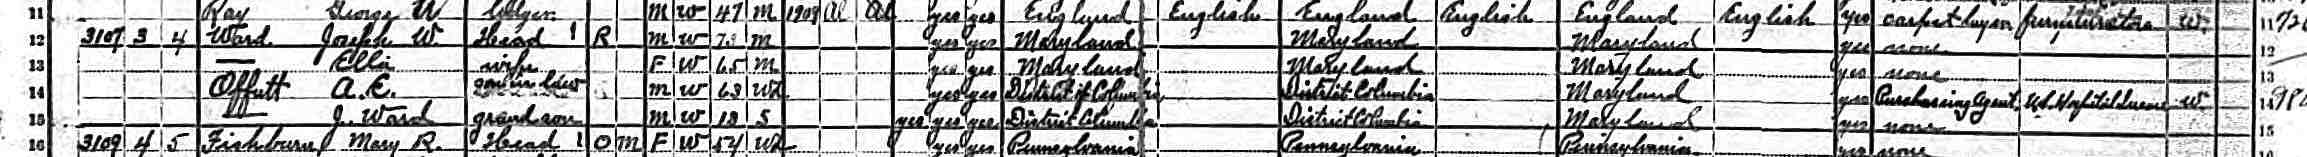 11 Ray George W lodger M W 47 M 1908 Al Al yes yes England English England English England English yes carpet layer furniture store W. 11
12 3107 3 4 Ward Joseph W. Head 1 R M W 73 M yes yes Maryland Maryland Maryland yes none 12
13 — Ella wife F W 65 M yes yes Maryland Maryland Maryland yes none 13
14 Offutt A. E. son in law M W 63 Wd yes yes District of Columbia District Columbia Maryland yes Purchasing Agent W 14
15 — J. Ward grandson M W 18 S yes yes yes District Columbia District Columbia Maryland yes none 15
16 3109 4 5 Fishburn Mary R. Head 1 O M F W 54 Wd yes yes Pennsylvania Pennsylvania Pennsylvania yes none